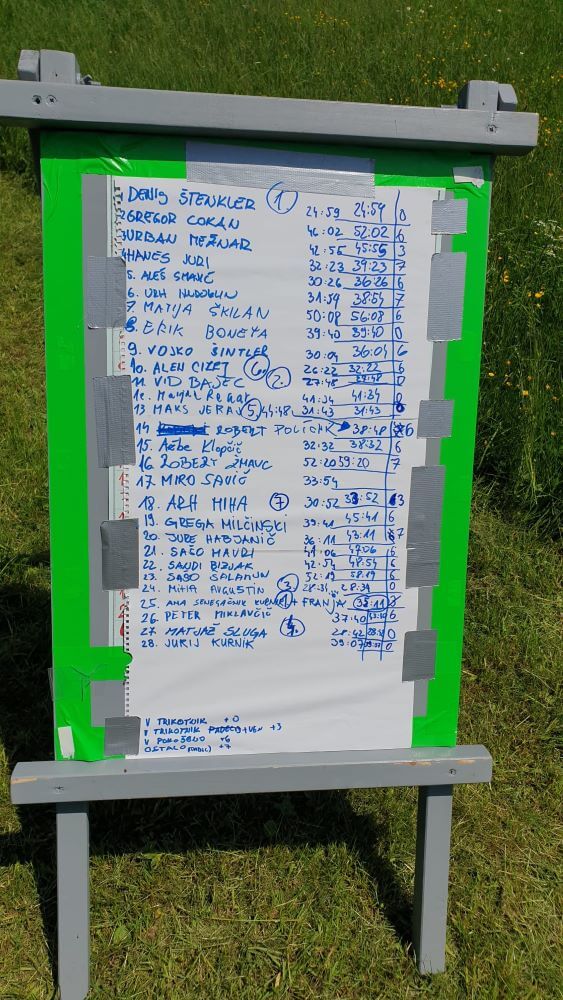 DENIS ŠTENKLER 1. 24:59 24:59 0
2 GREGOR COKAN 46:02 52:02 6
3 URBAN MEŽNAR 42:55 45:55 3
4 HANES JURI 32:23 39:23 7
5. ALEŠ 30:26 36:26 6
6. URH 31:54 38:54 7
7. MATIJA ŠKILAN 50:08 56:08 6
8. ERIK BONETA 39:40 39:40 0
9. VOJKO ŠINTLER 30:04 36:04 6
10. ALEN CIZEJ 6. 26:22 32:22 6
11. VID BAJEC 2. 27:48 27:48 0
12. 41:34 41:34 0
13 MAKS 5. 44:48 31:43 31:43
14 ROBERT POLIČNIK 38:48 6
15. Klopčič 32:32 38:32 6
16 ROBERT ŽMAVC 52:20 59:20 7
17 MIRO SAVIČ 33:54
18. ARH MIHA 7 30:52 33:52 3
19. GREGA MILČINSKI 39:41 45:41 6
20. JURE HABJANIČ 36:11 43:11 7
21. SAŠO MAVRI 41:06 47:06 6
22. SANDI BIZJAK 42:54 48:54 6
23. SAŠO 52:19 58:19 6
24. MITJA AVGUŠTIN 3. 28:34 28:34 0
25. ANA SENEGAČNIK KURNIK + FRANJA 3
26. PETER MIKLAVČIČ 37:40 6
27 MATJAŽ SLUGA 4. 28:42 0
28. JURIJ KURNIK 39:07 0
V TRIKOTNIK +0
V TRIKOTNIK +VEN +3
V POKOŠENO +6
OSTALO +7